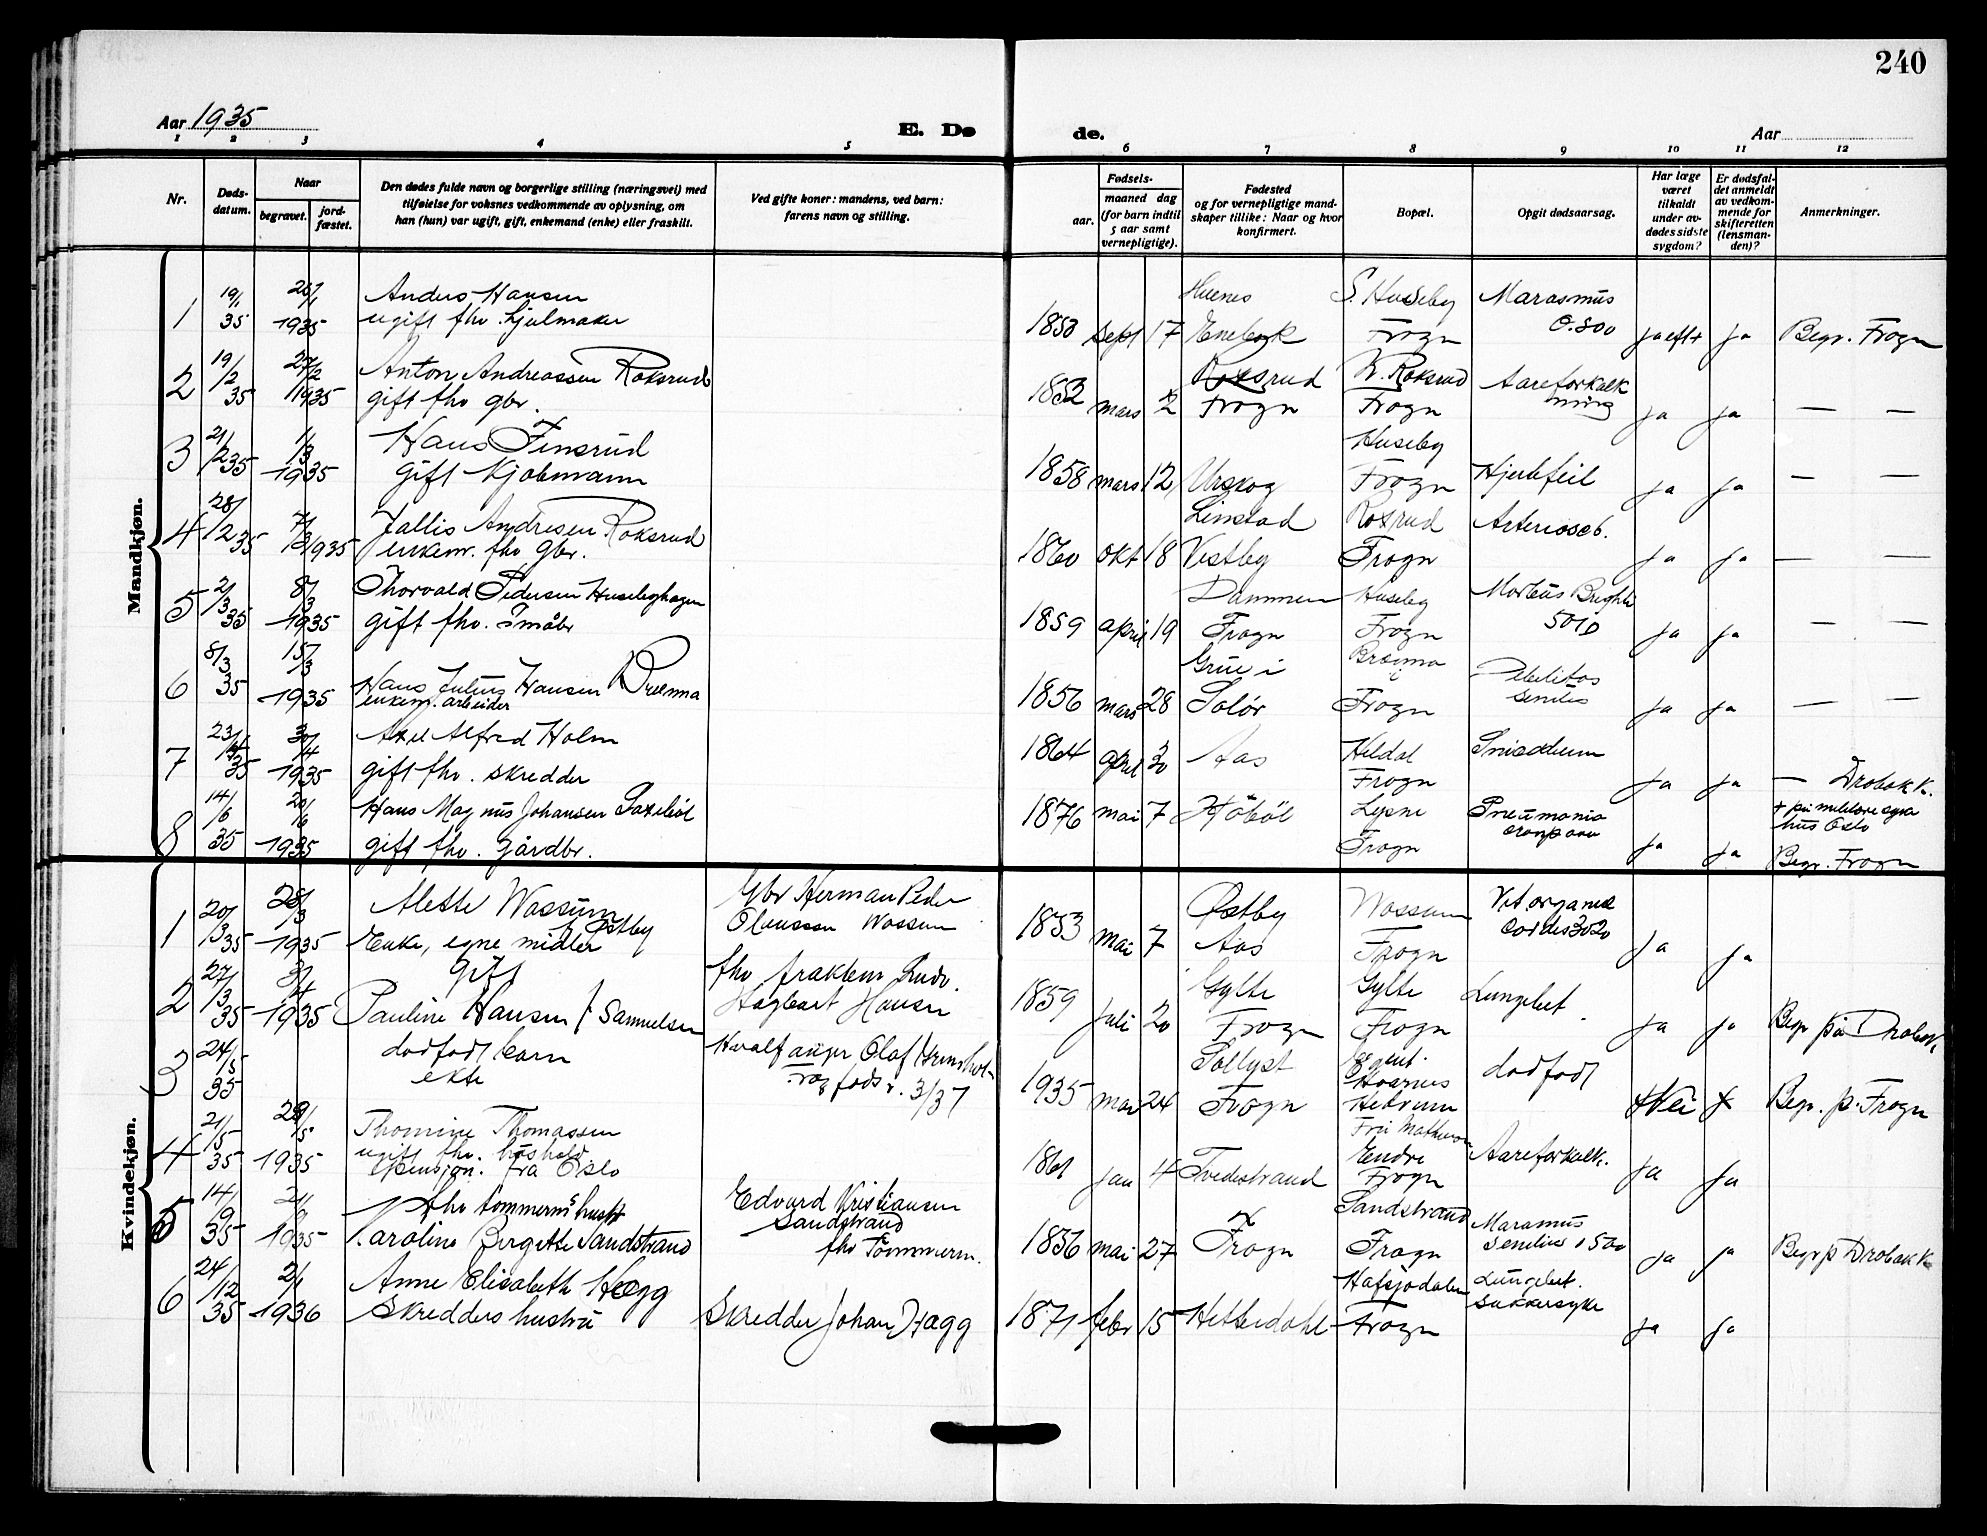 240
Aar 1935
E. Dø
de.
Aar
1 2 3 4 5 6 7 8 9 10 11 12
Nr.
Døds-
datum.
Naar
begravet.
jord-
fæstet.
Den dødes fulde navn og borgerlige stilling (næringsvei) med
tilføielse for voksnes vedkommende av oplysning, om
han (hun) var ugift, gift, enkemand (enke) eller fraskilt.
Ved gifte koner: mandens, ved barn:
farens navn og stilling.
Fødsels-
aar.
maaned dag
(for barn indtil
5 aar samt
vernepligtige).
Fødested
og for vernepligtige mand-
skaper tillike: Naar og hvor
konfirmert.
Bopæl.
Opgit dødsaarsag.
Har læge
været
tilkaldt
under av-
dødes sidste
sygdom?
Er dødsfal-
det anmeldt
av vedkom-
mende for
skifteretten
(lensman-
den)?
Anmerkninger.
Mandkjøn.
1 19/1 35 1935 Anders Hansen
ugift fhv. hjulmaker
1858 sept 17 Enebak
S. Huseby
Frogn
Marasmus
ja ja Begr. Frogn
2 19/2 35 27/2 1935 Anton Andreassen Roksrud
gift fhv gbr.
1852 mars 2 Roksrud
Frogn
N. Roksrud
Frogn
Aareforkalk
ning
ja ja — —
3 21/2 35 1/3 1935 Hans Finsrud
gift Kjøbmann
1858 mars 12 Urskog
Huseby
Frogn
Hjertefeil
ja ja — —
4 28/2 35 7/3 1935 Jallis Andresen Roksrud
enkem. fhv gbr.
1860 okt 18 Linstad
Vestby
Roksrud
Frogn
ja ja — —
5 2/3 35 8/3 1935 Thorvald Pedersen Husebyhagen
gift fhv. Småbr
1859 april 19 Dammen
Frogn
Huseby
Frogn
Morbus Brighti
ja ja — —
6 8/3 35 15/3 1935 Hans Julius Hansen
enkem. arbeider
1856 mars 28 Grue i
Solør
Frogn
Debilitas
senilis
ja ja — —
7 23/4 35 30/4 1935 Axel Alfred Holm
gift fhv. skredder
1864 april 30 Aas
Heldal
Frogn
ja ja — Drobak k.
8 14/6 35 20/6 1935 Hans Magnus Johansen
gift fhv. gårdbr.
1876 mai 7 Hobøl
Frogn
Pneumonia
ja ja
hus Oslo
Begr. Frogn
Kvindekjøn.
1 20/3 35 28/3 1935 Alette Wassum
f. Østby
Enke, egne midler
Gbr Herman Peder
Olaussen Wassum
1853 mai 7 Østby
Aas
Wassum
Frogn
Vit. organica
cordis
ja ja
2 27/3 35 3/4 1935 gift
Pauline Hansen f. Samuelsen
Hagbart Hansen
1859 juli 20 Gylte
Frogn
Gylte
Frogn
Lungebet.
ja ja Begr på Drobak
3 24/5 35 dodfodt barn
ekte
1935 mai 24 Sollyst
Frogn
dodfodt
Nei Begr. p. Frogn
4 21/5 35 28/5 1935 Thomine Thomassen
ugift fhv. hushold.
pensjon. fra Oslo
1861 jan 4 Tvedestrand
Endre
Frogn
Aareforkalk.
ja ja
5 14/9 35 1935 fhv tommerms hustr
Karoline Bergette Sandstrand
Edvard Kristiansen
Sandstrand
fhv Tommerm.
1856 mai 27 Frogn
Sandstrand
Frogn
Marasmus
senilis
ja ja Begr p Drobak k
6 24/12 35 2/1 1936 Anne Elisabeth Hagg
Skredders hustru
Skredder Johan Hagg
1871 febr 15 Hitterdahl
Frogn
Lungebet.
Sukkersyke
ja ja